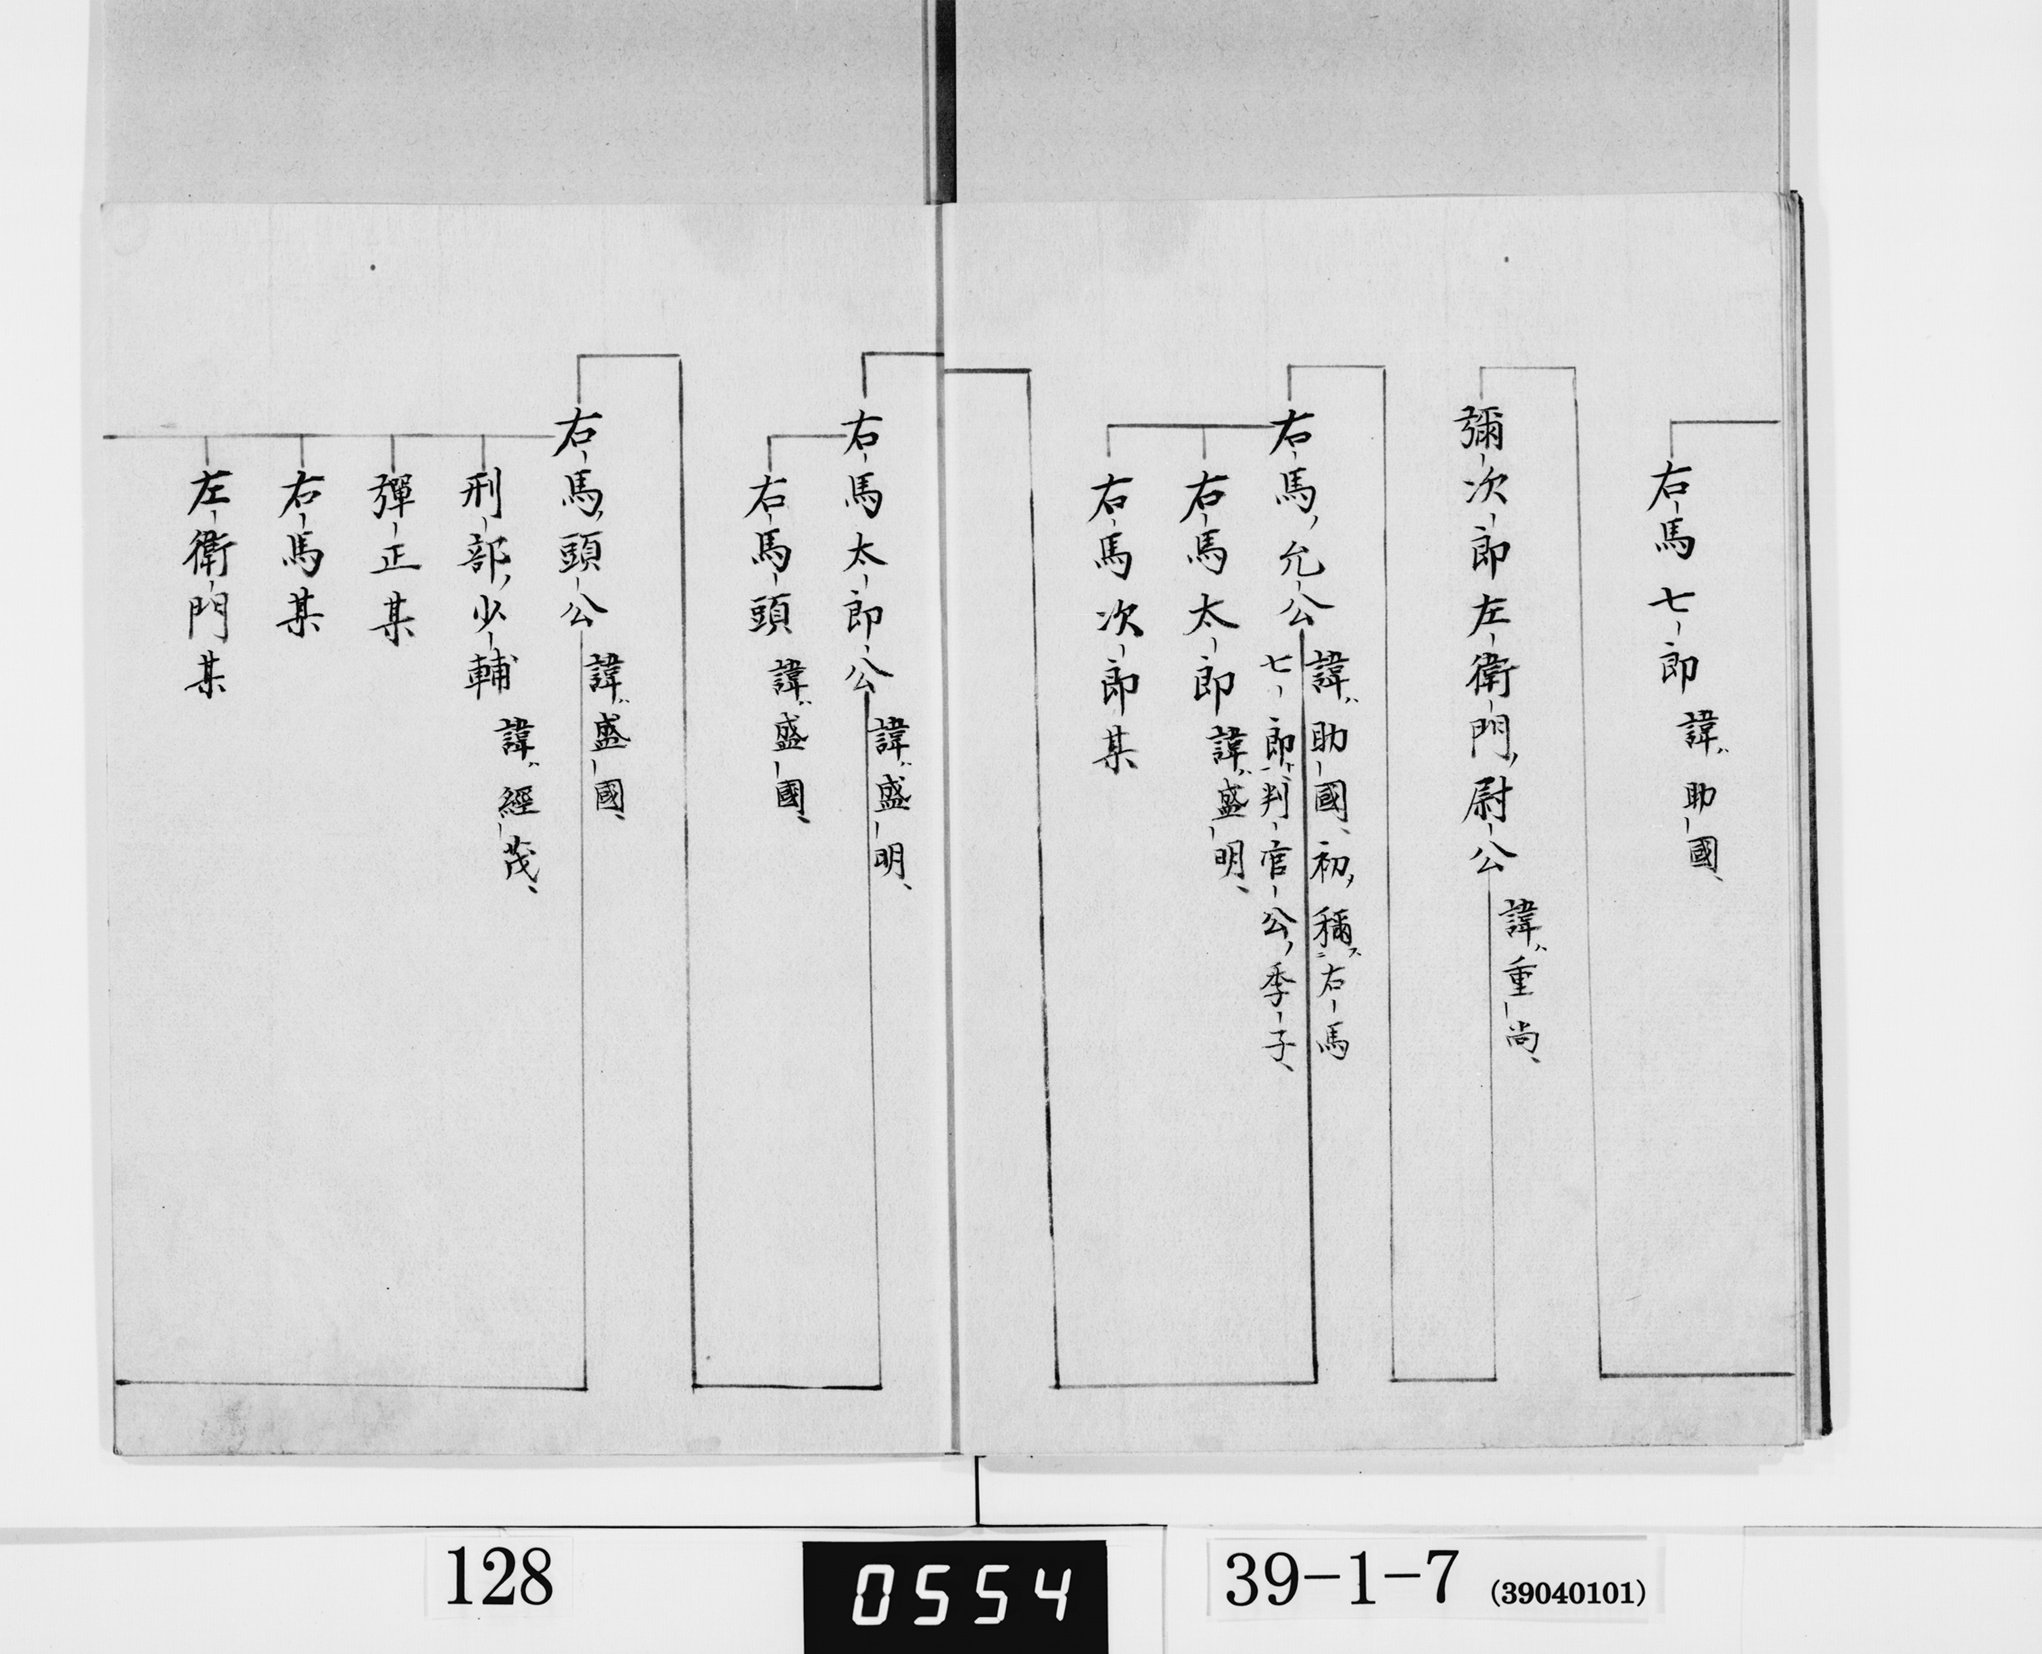 右馬七郎 諱ハ助國、
彌次郎左衛門尉公 諱ハ重尚、
右馬允公 諱ハ助國、初稱ス二右馬
七郎ト一、判官公ノ季子、
右馬太郎 諱ハ盛明、
右馬次郎某
右馬太郎公 諱ハ盛明、
右馬頭 諱ハ盛國、
右馬頭公 諱ハ盛國、
刑部少輔 諱ハ經茂、
彈正某
右馬某
左衛門某
128
0554
39-1-7 (39040101)